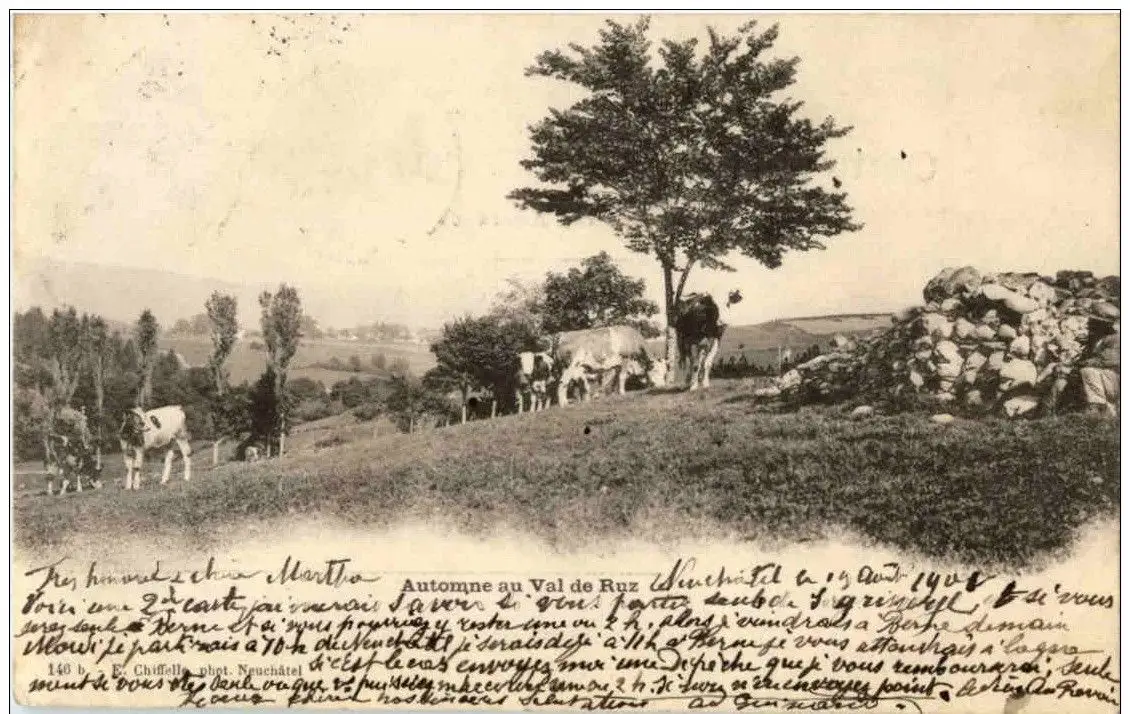 Très honoré & chère Martha
Automne au Val de Ruz
Neuchâtel le 19 Août 190
Voici une 2de carte, j'aimerais savoir si vous partez seule de et si vous
serez seule à Berne et si vous pourriez y rester une ou 2 h. alors je viendrais à Berne demain
je partirais à 10 h de Neuchâtel je serais déjà à 11 h à Berne je vous attendrais à la gare
146 b. - E. Chiffelle, phot. Neuchâtel
si c'est le cas envoyez moi une Dépêche que je vous rembourserai, seule
ment si vous êtes seule ou que vs puissiez une ou 2 h. Si non n'en envoyez point.
Salutations